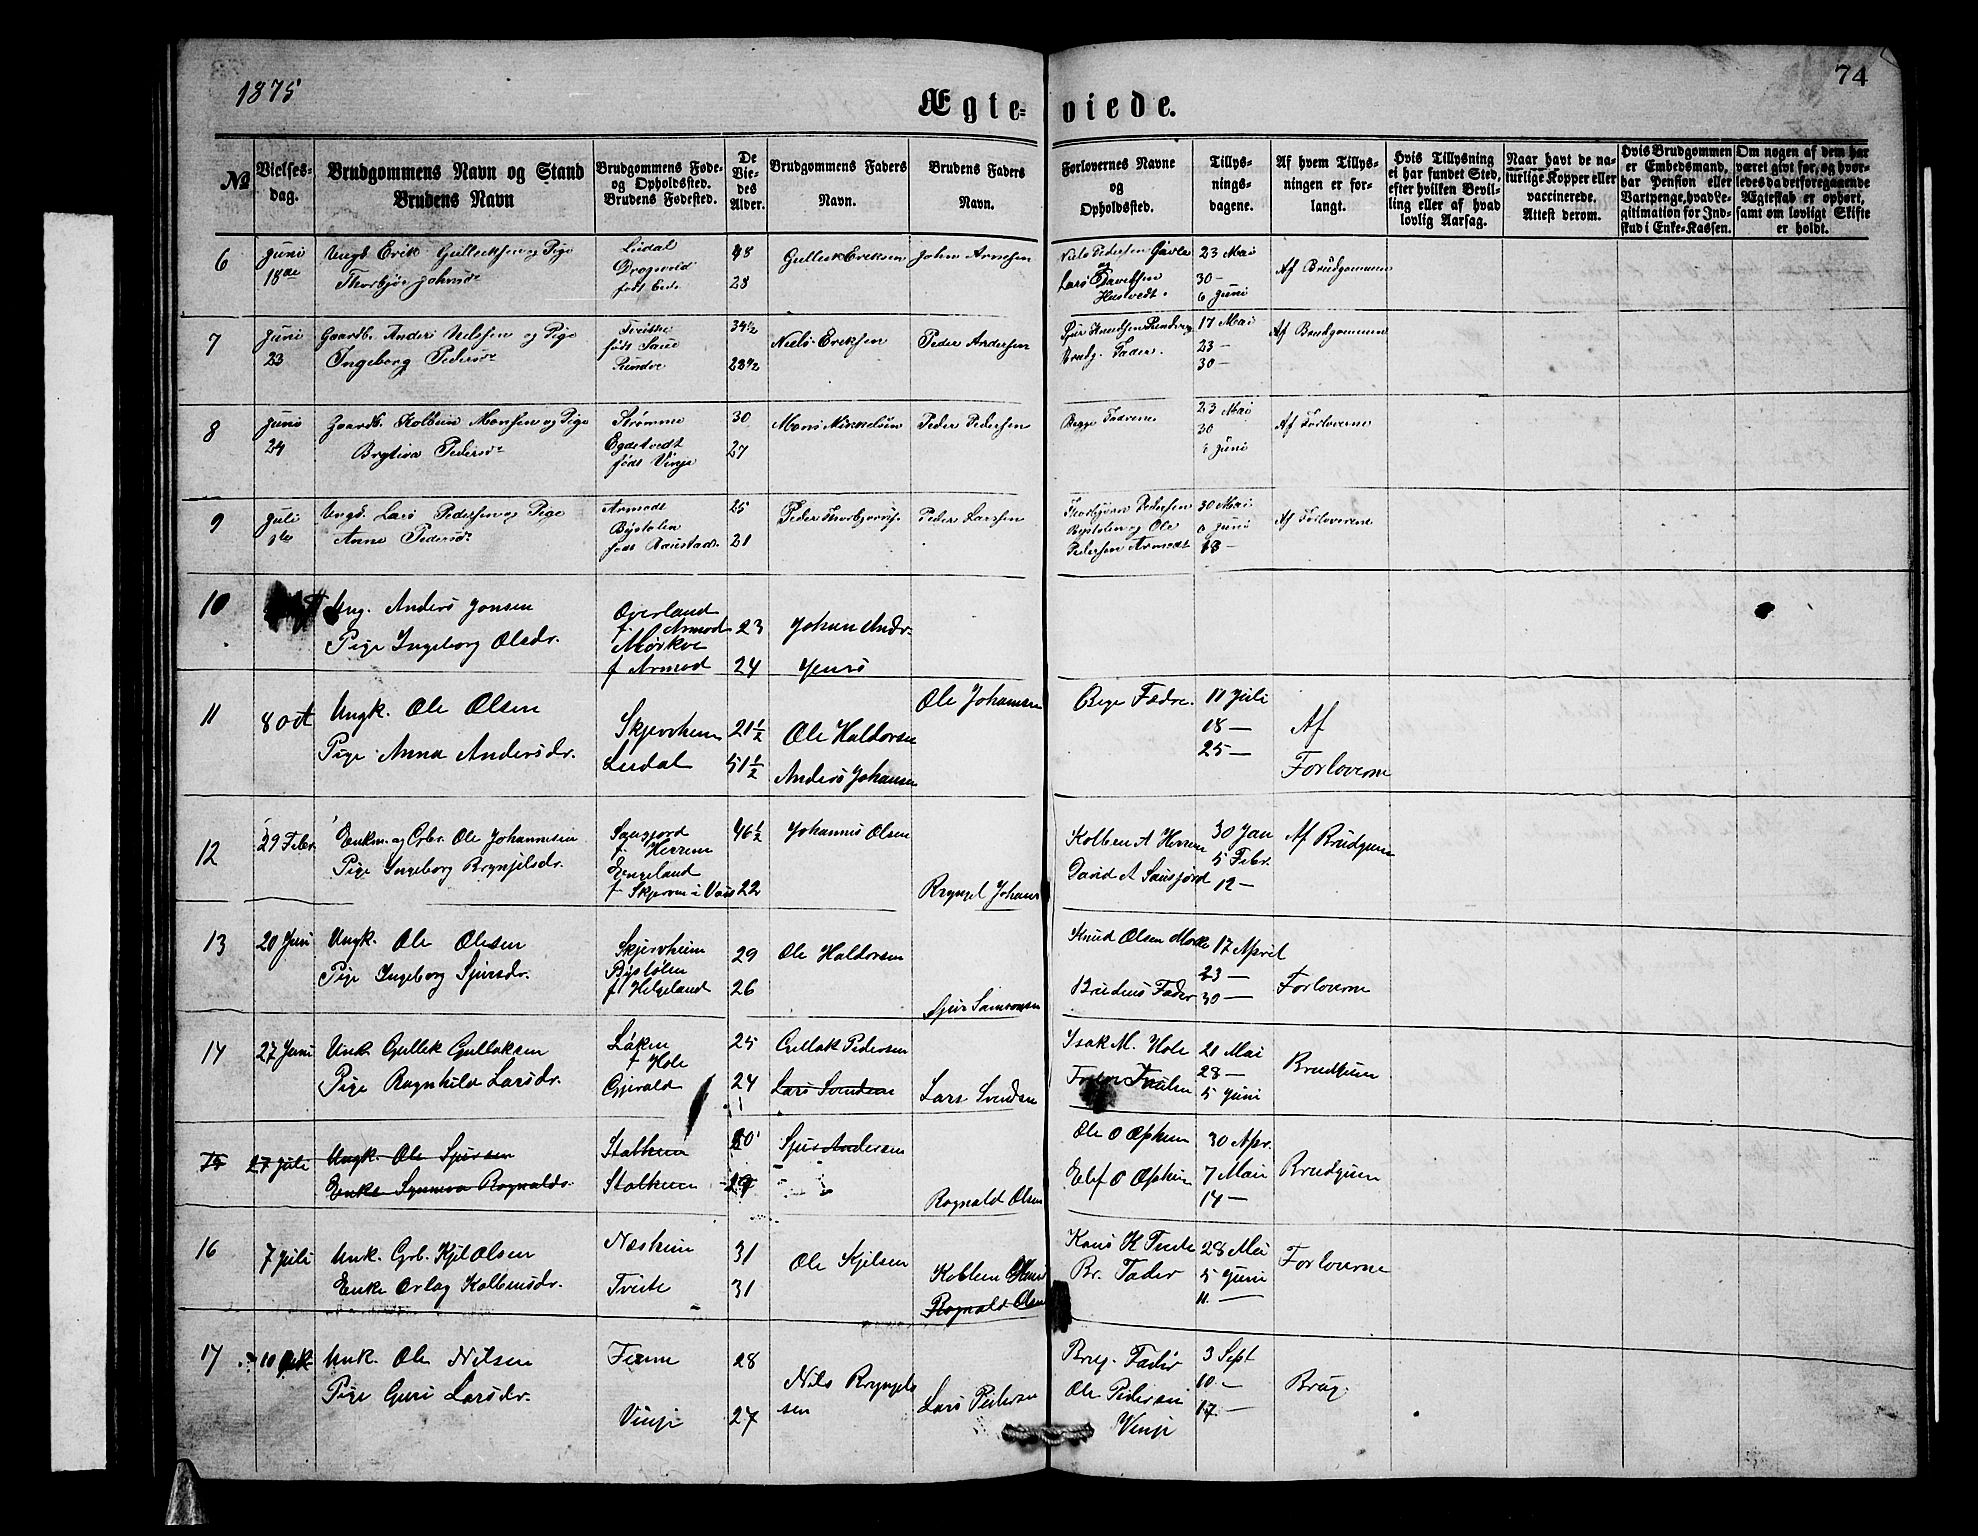 1875
74
Ægteviede.
No
Vielses-dag.
Brudgommens Navn og Stand
Brudens Navn
Brudgommens Føde- og Opholdssted.
Brudens Fødested.
De Viedes Alder.
Brudgommens Faders Navn.
Brudens Faders Navn.
Forlovernes Navne og Opholdssted.
Tillysningsdagene.
Af hvem Tillysningen er forlangt.
Hvis Tillysning ei har fundet Sted, efter hvilken Bevilling eller af hvad lovlig Aarsag.
Naar havt de naturlige Kopper eller vaccinerede. Attest derom.
Hvis Brudgommen er Embedsmand, har Pension eller Vartpenge, hvad Legitimation for Indskud i Enke-Kassen.
Om nogen af dem har været givt før, og hvorledes da det foregaaende Ægteskab er ophørt, samt om lovligt Skifte er holdt.
6 Juni 18de Ungk. Erik Gulleiksen og Pige Lirdal 48 Gullek Eriksen John Arnesen Niels Pedersen Gavle 23 Mai
Thorbjør Johnsdr Dragvold født Eide 28 og Lars Davidsen 30 – Af Brudgommen
6 Juni
7 Juni 23 Gaardb. Anders Nielsen og Pige Tveitte 34½ Niels Eriksen Peder Andersen Sjur Knudsen Rundve 17 Mai Af Brudgommen
Ingeborg Pedersdr født Saue Rundve 28½ Brudg. Fader. 23 –
30 –
8 Juni 24 Gaardb. Kolbein Monsen og Pige Strømme 30 Mons Mikkelsen Peder Pedersen Begge Fædrene 23 Mai Af Forloverne
Brytiva Pedersdr Egdetvedt født Vinje 27 30
6 Juni
9 Juli 1ste Ungk. Lars Pedersen og Pige Armodt 25 Peder Thorbjørns. Peder Larsen Thorbjørn Pedersen 30 Mai
Anna Pedersdr Bystølen 21 Bystølen og Ole 6 Juni Af Forloverne
Pedersen Armodt 13 –
10 Ung. Anders Jonsen Øverland f. Armod 23 Johan Andr.
Pige Ingeborg Olsdr. Mørkve f Armod 24 Jens
11 8 Oct Ungk. Ole Olsen Skjervheim 21½ Ole Haldorsen Ole Johansen Bege Fædre. 11 Juli
Pige Anna Andersdr. Lirdal 51½ Anders Johansen 18 – Af
25 – Forloverne
12 29 Febr. Enkm. og Grbr. Ole Johannesen Sausjord 46½ Johannes Olsen Kolben A Herrem 30 Jan Af Brudgum
Pige Ingeborg Brynjelsdr. f Herrem Engeland 5 Febr.
f Skjerve i Vos 22 Bryngel Johans David A Sausjord 12 –
13 20 Juni Ungk. Ole Olsen Skjervheim 29 Ole Haldorsen Knud Olsen Mørke 17 April
Pige Ingeborg Sjursdr. Bystølen 23 –
f Helgeland 26 Sjur Samsonsen Brudens Fader 30 – Forloverne
14 27 Juni Unk. Gullek Gulleksen Løken 25 Gullak Pedersen Isak M. Hole 21 Mai
f Hole 28 – Brudgum
Pige Ragnhild Larsdr. Gjerald 24 Lars Svendsen Lars Svendsen 5 Juni
15 27 Juli Ungk. Ole Sjursen Stalheim 20 Sjur Andersen Ole O Opheim 30 Apr.
Enke Synneva Rognaldsdr. Stalheim 29 Rognald Olsen Elef O Opheim 7 Mai Brudgum
14 –
16 7 Juli Unk. Grb. Kjel Olsen Næsheim 31 Ole Kjelsen Kolben Knud 28 Mai Forloverne
Enke Orlog Kolbensdr. Tveite 31 Rognald Olsen Br. Fader 5 Juni
11 –
17 10 Unk. Ole Nilsen Finne 28 Nils Bryngelssen Lars Pedersen Brug. Fader 3 Sept
Pige Guri Larsdr. Vinje 27 Ole Pedersen 10 – Brug.
Vinje 17 –